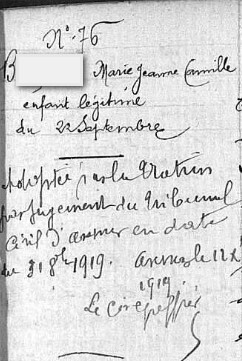 N° 76
B
Marie Jeanne Camille
enfant légitime
du 22 Septembre
Adoptée par la Nation
par jugement du Tribunal
Civil d'Avesnes en date
du 31 8bre 1919. Avesnes le 12 X
1919
Le Greffier